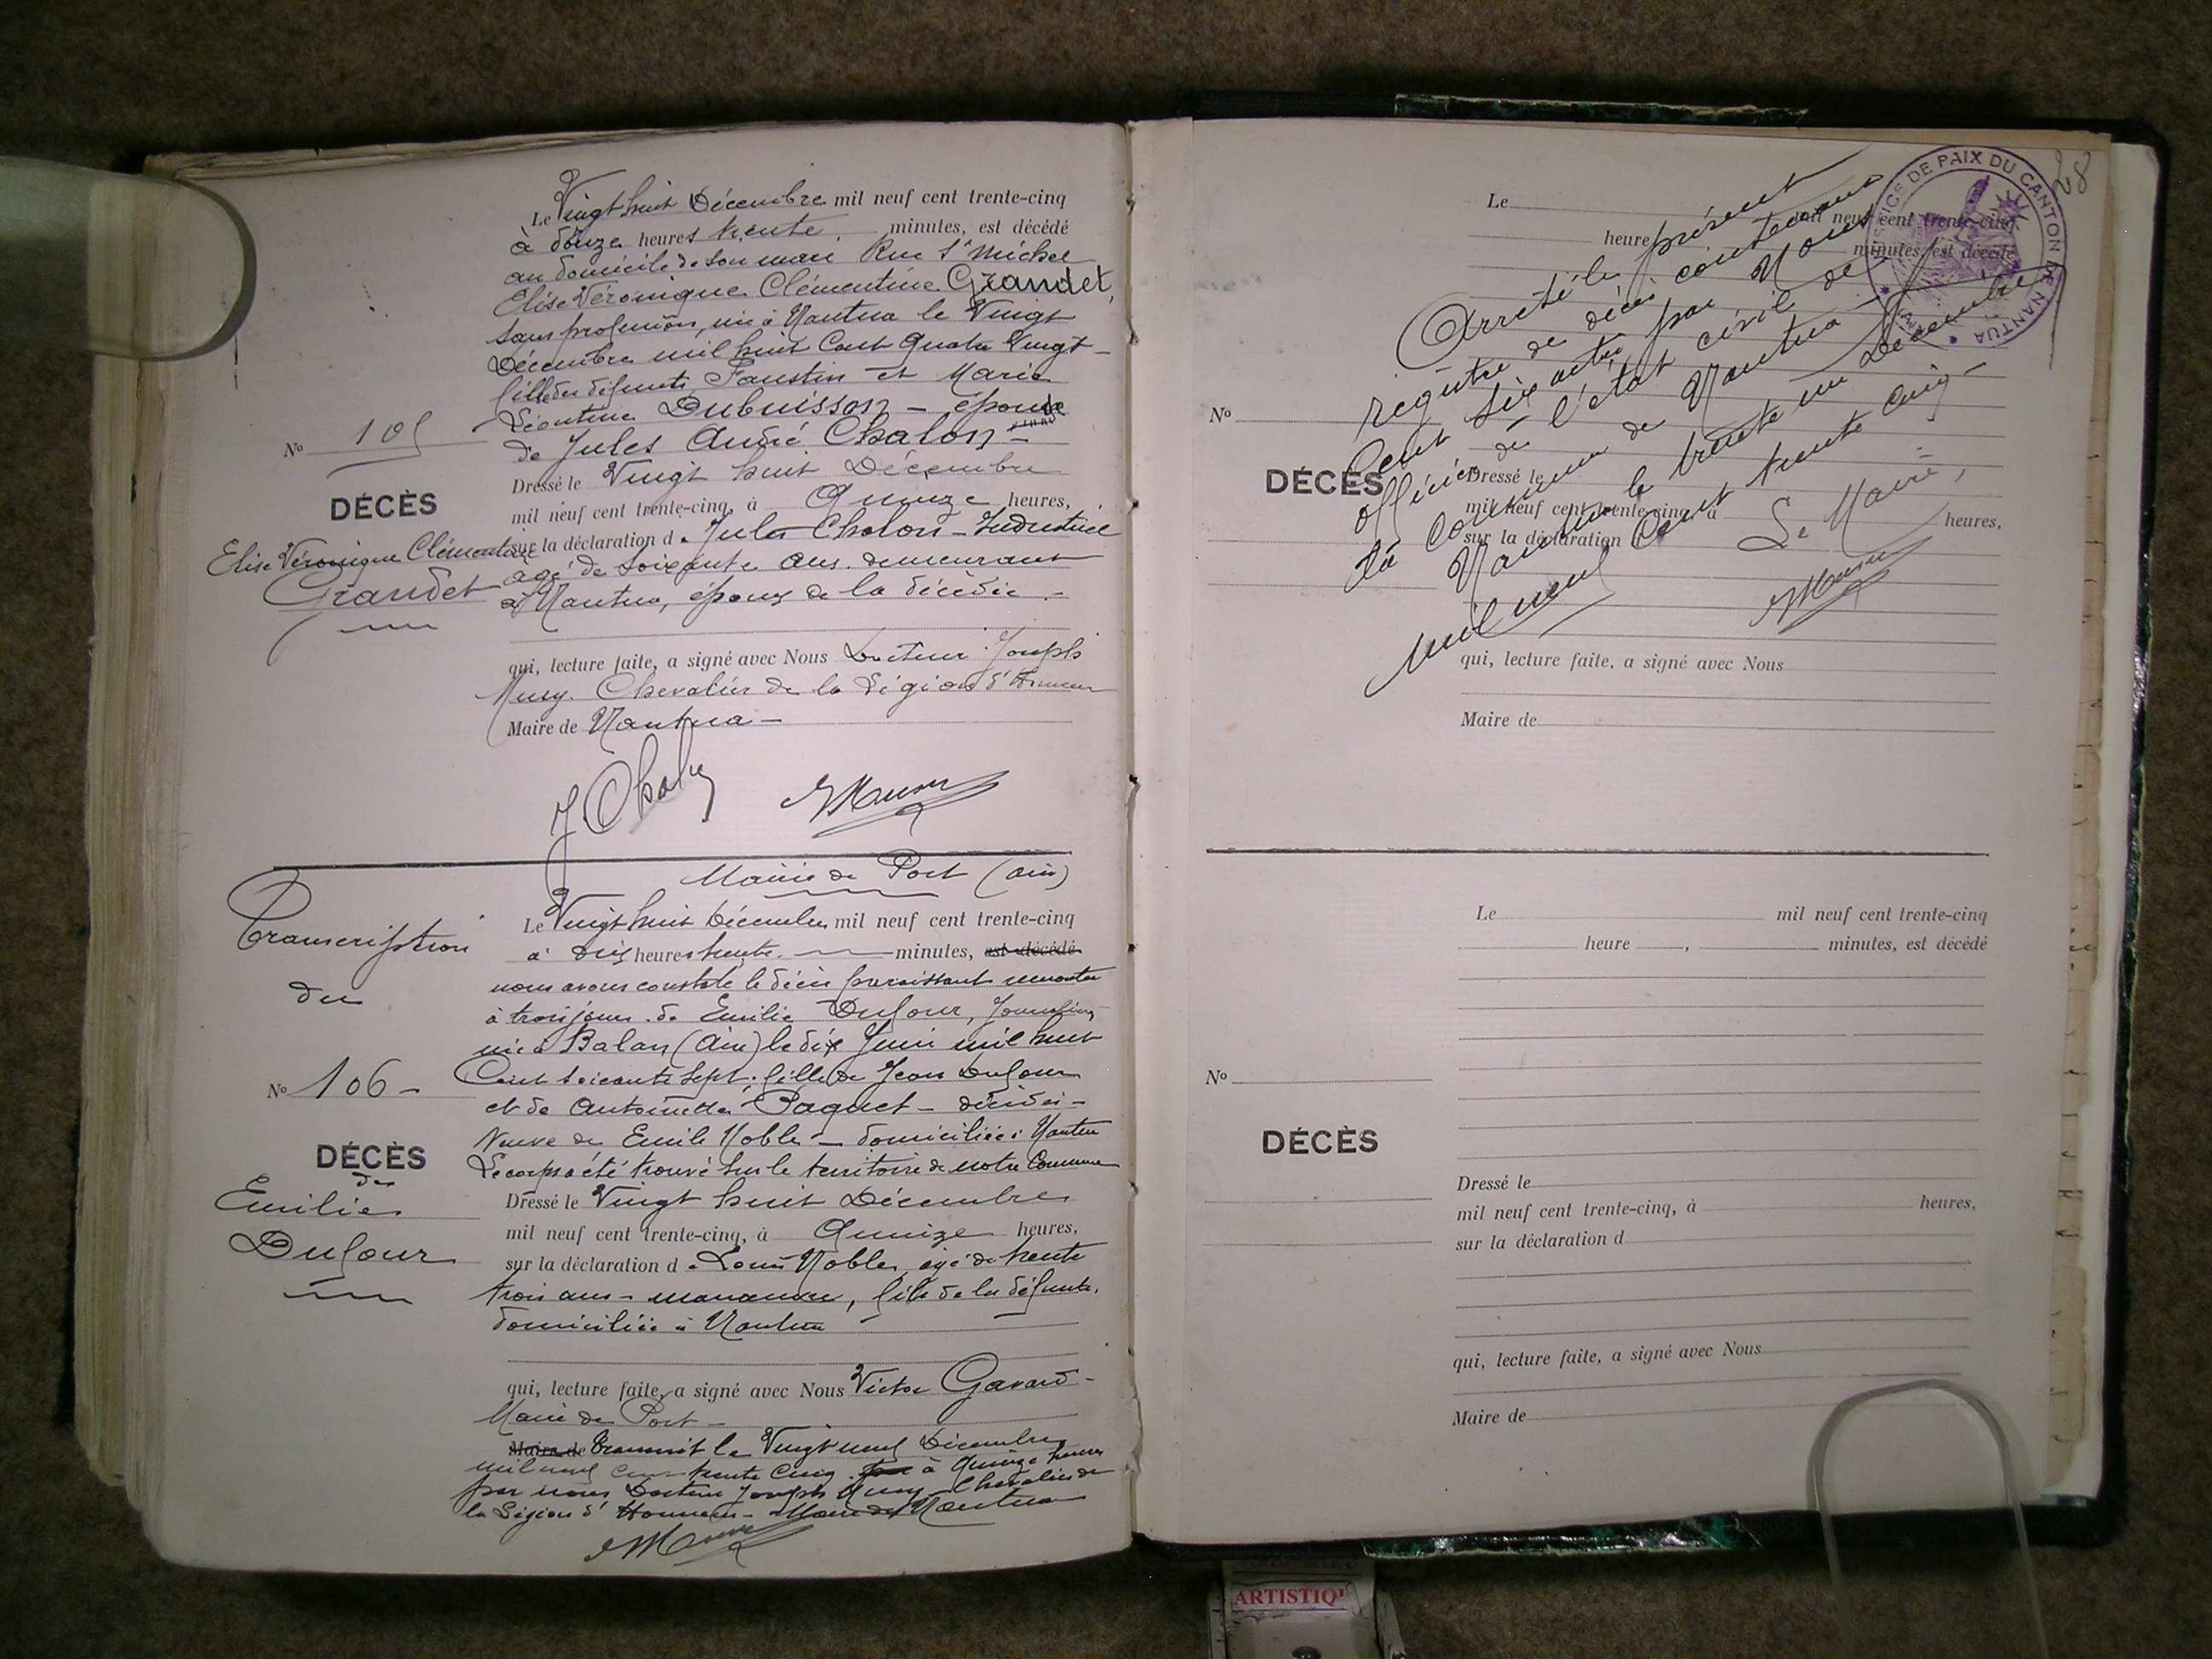 Le Vingt huit Décembre mil neuf cent trente-cinq
à douze heures trente, minutes, est décédé
au domicile de son mari Rue St Michel
Elise Véronique Clémentine Grandet,
sans profession, née à Nantua le Vingt
Décembre mil huit Cent Quatre Vingt -
fille des défunts Faustin et Marie
Léontine Dubuisson - épouse
de Jules André Chalon -
Dressé le Vingt huit Décembre
mil neuf cent trente-cinq, à Quinze heures,
sur la déclaration de Jules Chalon - Industriel
âgé de soixante ans. demeurant
à Nantua, époux de la décédée -
qui, lecture faite, a signé avec Nous Docteur Joseph
Musy. Chevalier de la Légion d'Honneur
Maire de Nantua -
No 105
DÉCÈS
Elise Véronique Clémentine
Grandet
Mairie de Port (Ain)
Le Vingt huit Décembre mil neuf cent trente-cinq
à dix heures trente. minutes, est décédé
nous avons constaté le décès paraissant remonter
à trois jours. de Emilie Dufour,
née à Balan (Ain) le dix Juin mil huit
Cent soixante sept; fille de Jean Dufour
et de Antoinette Paquet - décédés -
Veuve de Emile Noble - domiciliée à Nantua
Le corps a été trouvé sur le territoire de notre Commune
Dressé le Vingt huit Décembre
mil neuf cent trente-cinq, à Quinze heures,
sur la déclaration de Louis Noble, âgé de trente
trois ans - manœuvre, fils de la défunte,
domicilié à Nantua
qui, lecture faite, a signé avec Nous Victor Gavard -
Maire de Port -
Maire de Transcrit le Vingt neuf Décembre
mil neuf cent trente Cinq. à Quinze heures
par nous Docteur Joseph Musy - Chevalier de
la Légion d'Honneur - Maire de Nantua
Transcription
du
No 106 -
DÉCÈS
de
Emilie
Dufour
28
JUSTICE DE PAIX DU CANTON DE NANTUA
Le mil neuf cent trente-cinq
heure minutes, est décédé
Arrêté le présent
registre de décès contenant
Cent six actes par Nous
officier de l'état civil de
la Commune de Nantua -
Nantua le trente un Décembre
mil neuf Cent trente cinq -
Le Maire,
No
DÉCÈS
Dressé le
mil neuf cent trente-cinq, à heures,
sur la déclaration d
qui, lecture faite, a signé avec Nous
Maire de
Le mil neuf cent trente-cinq
heure , minutes, est décédé
No
DÉCÈS
Dressé le
mil neuf cent trente-cinq, à heures,
sur la déclaration d
qui, lecture faite, a signé avec Nous
Maire de
ARTISTIQ